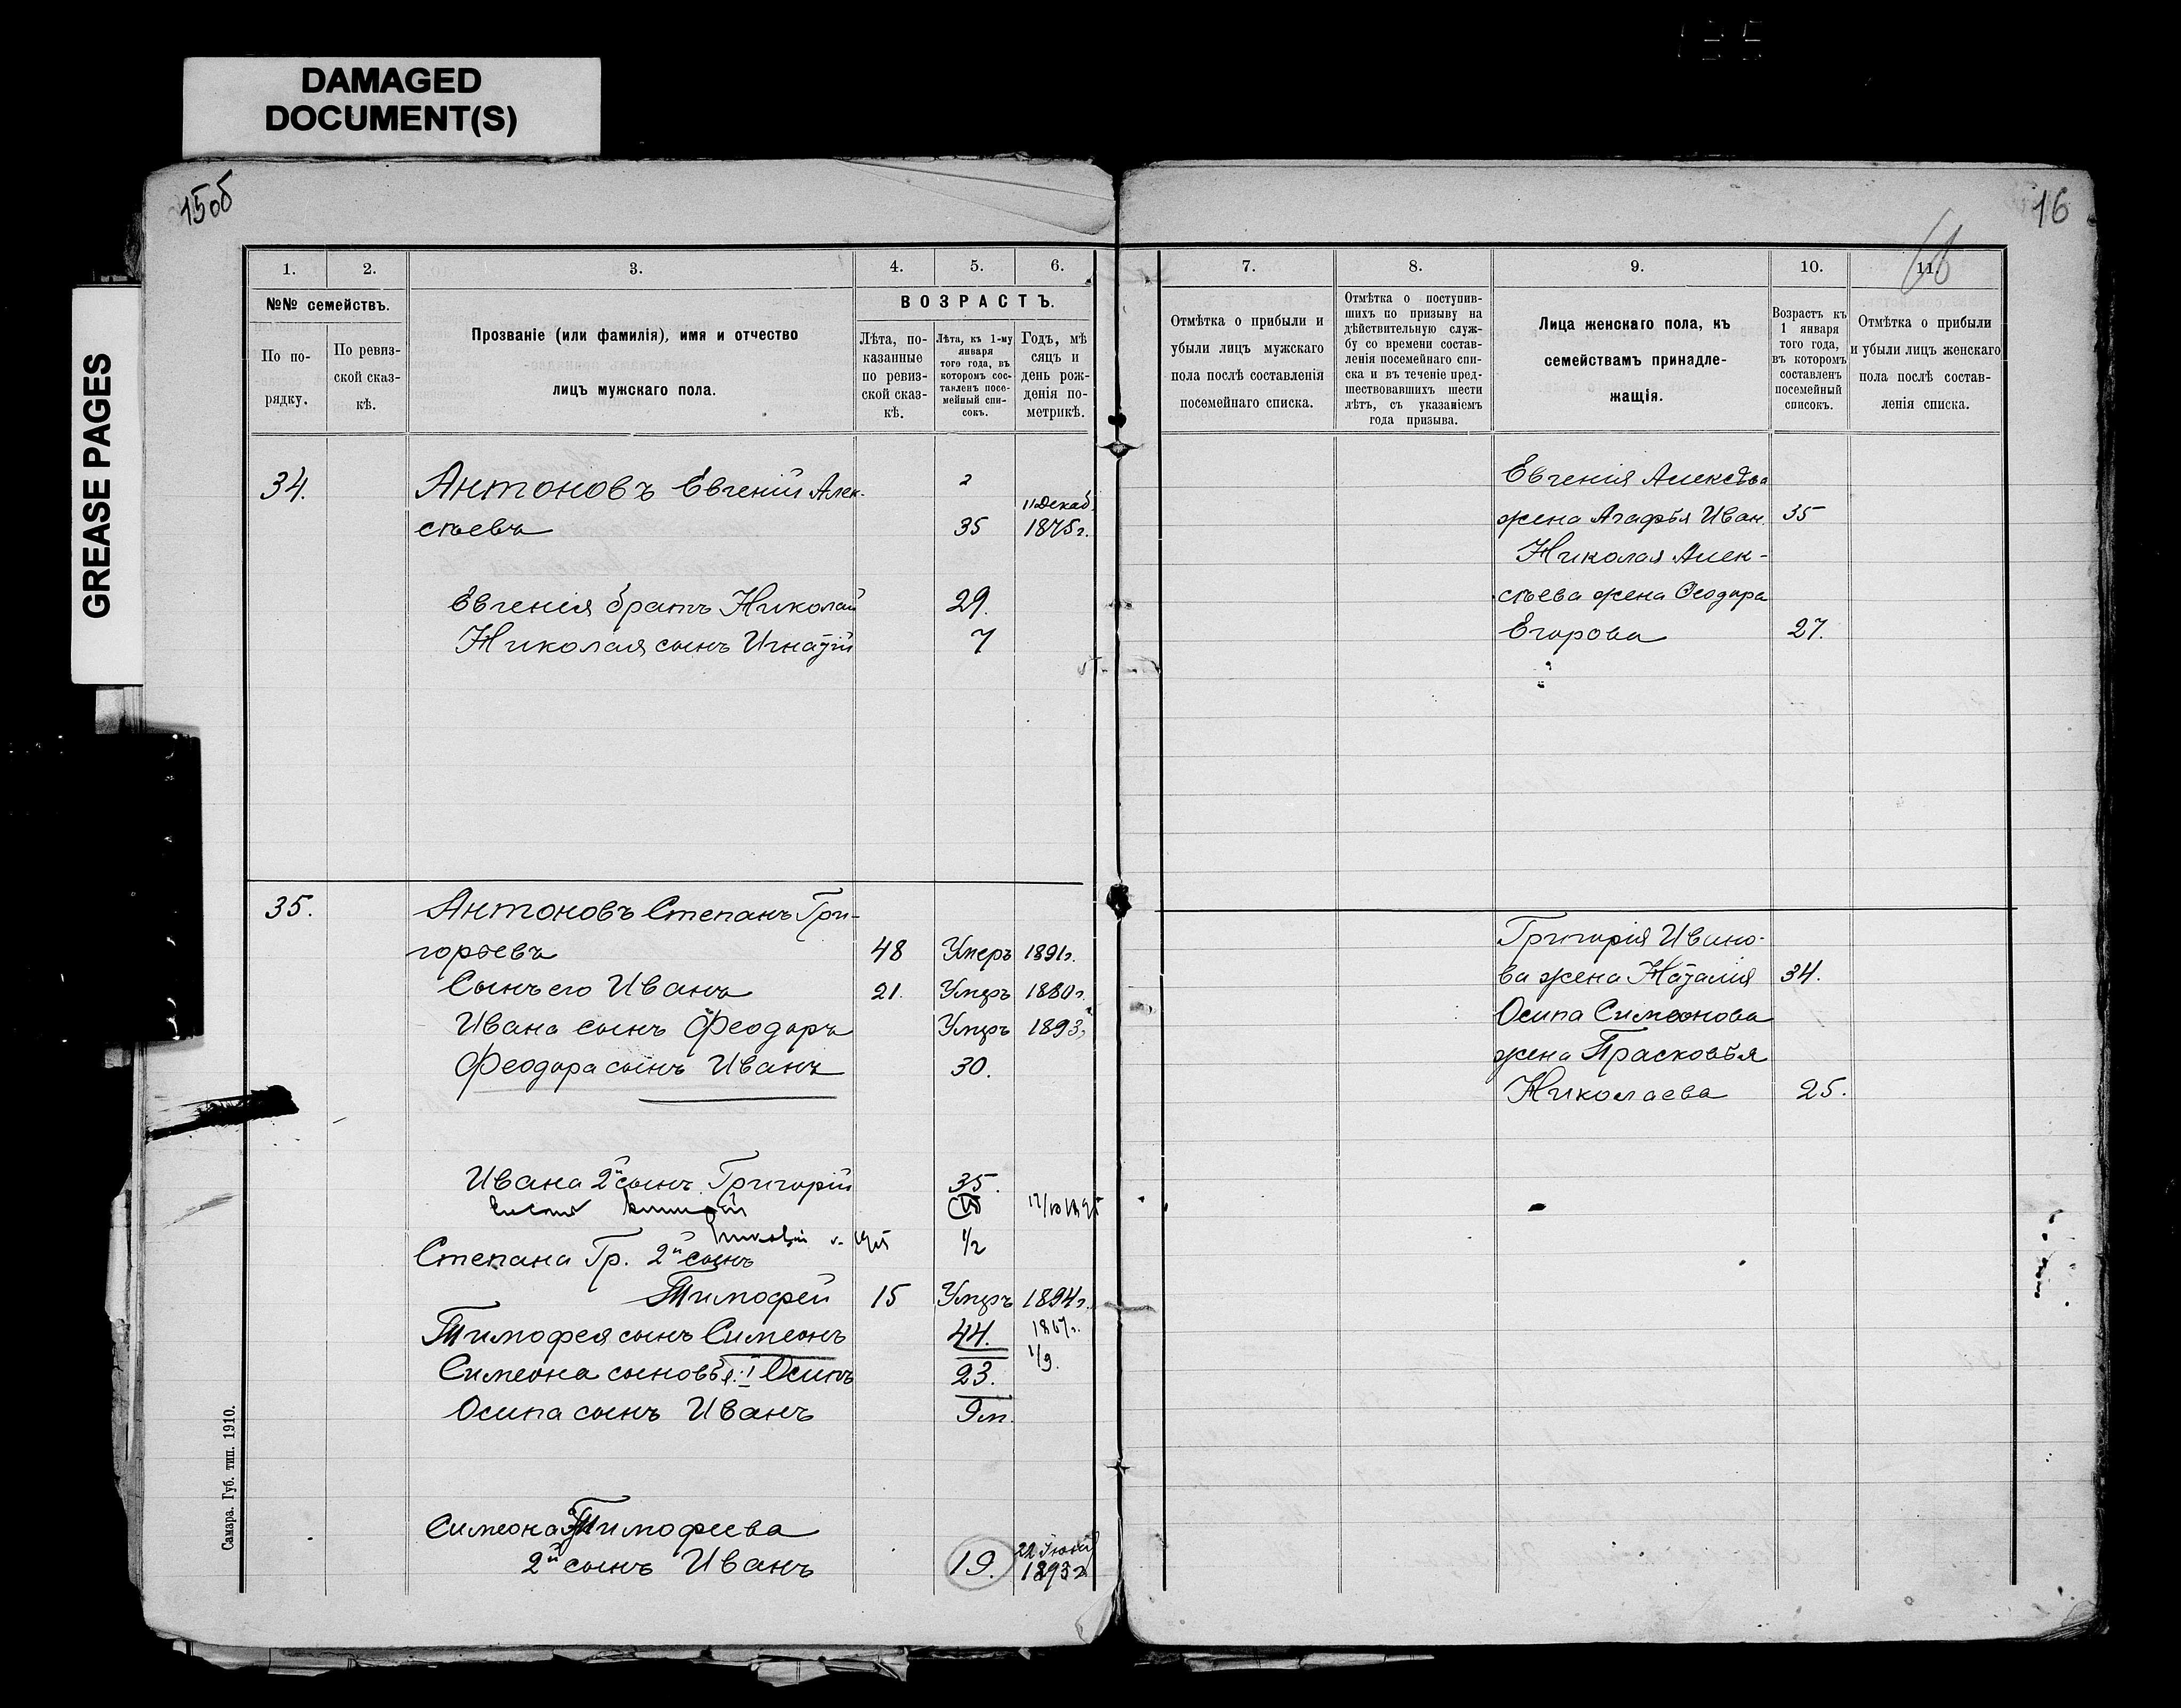 DAMAGED
DOCUMENT(S)
GREASE PAGES
15об
16
1.
2.
3.
4.
5.
6.
№№ семействъ.
По по-
рядку.
По ревиз-
ской сказ-
кѣ.
Прозваніе (или фамилія), имя и отчество
лицъ мужскаго пола.
ВОЗРАСТЪ.
Лѣта, по-
казанные
по ревиз-
ской сказ-
кѣ.
Лѣта, къ 1-му
января
того года, въ
которомъ сос-
тавленъ посе-
мейный спи-
сокъ.
Годъ, мѣ
сяцъ и
день рож-
денія по-
метрикѣ.
34.
Антоновъ Евгеній Алек-
2
11 Декаб
сѣевъ 35 1875г.
Евгенія братъ Николай 29.
Николая сынъ Игнатій 7
35.
Антоновъ Степанъ Гри-
горьевъ 48 Умеръ 1891г.
Сынъ его Иванъ 21. Умеръ 1880г.
Ивана сынъ Феодоръ Умеръ 1893
Феодора сынъ Иванъ 30.
Ивана 2й сынъ Григорій 35.
1/2
Степана Гр. 2й сынъ
Тимофей 15 Умеръ 1894г.
Тимофея сынъ Симеонъ 44. 1867г.
1/9.
Симеона сыновья: I Осипъ 23.
Осипа сынъ Иванъ 9м.
Симеона Тимофеева
2й сынъ Иванъ 19. 22 Іюня
1893г
Самара. Губ. тип. 1910.
7.
8.
9.
10.
11.
Отмѣтка о прибыли и
убыли лицъ мужскаго
пола послѣ составленія
посемейнаго списка.
Отмѣтка о поступив-
шихъ по призыву на
дѣйствительную служ-
бу со времени состав-
ленія посемейнаго спи-
ска и въ теченіе пред-
шествовавшихъ шести
лѣтъ, съ указаніемъ
года призыва.
Лица женскаго пола, къ
семействамъ принадле-
жащія.
Возрастъ къ
1 января
того года,
въ которомъ
составленъ
посемейный
списокъ.
Отмѣтка о прибыли
и убыли лицъ женскаго
пола послѣ состав-
ленія списка.
Евгенія Алексѣева
жена Агафья Иван. 35
Николая Алек-
сѣева жена Ѳеодора
Егорова 27.
Григорія Ивано-
ва жена Наталія 34.
Осипа Симеонова
жена Прасковья
Николаева 25.